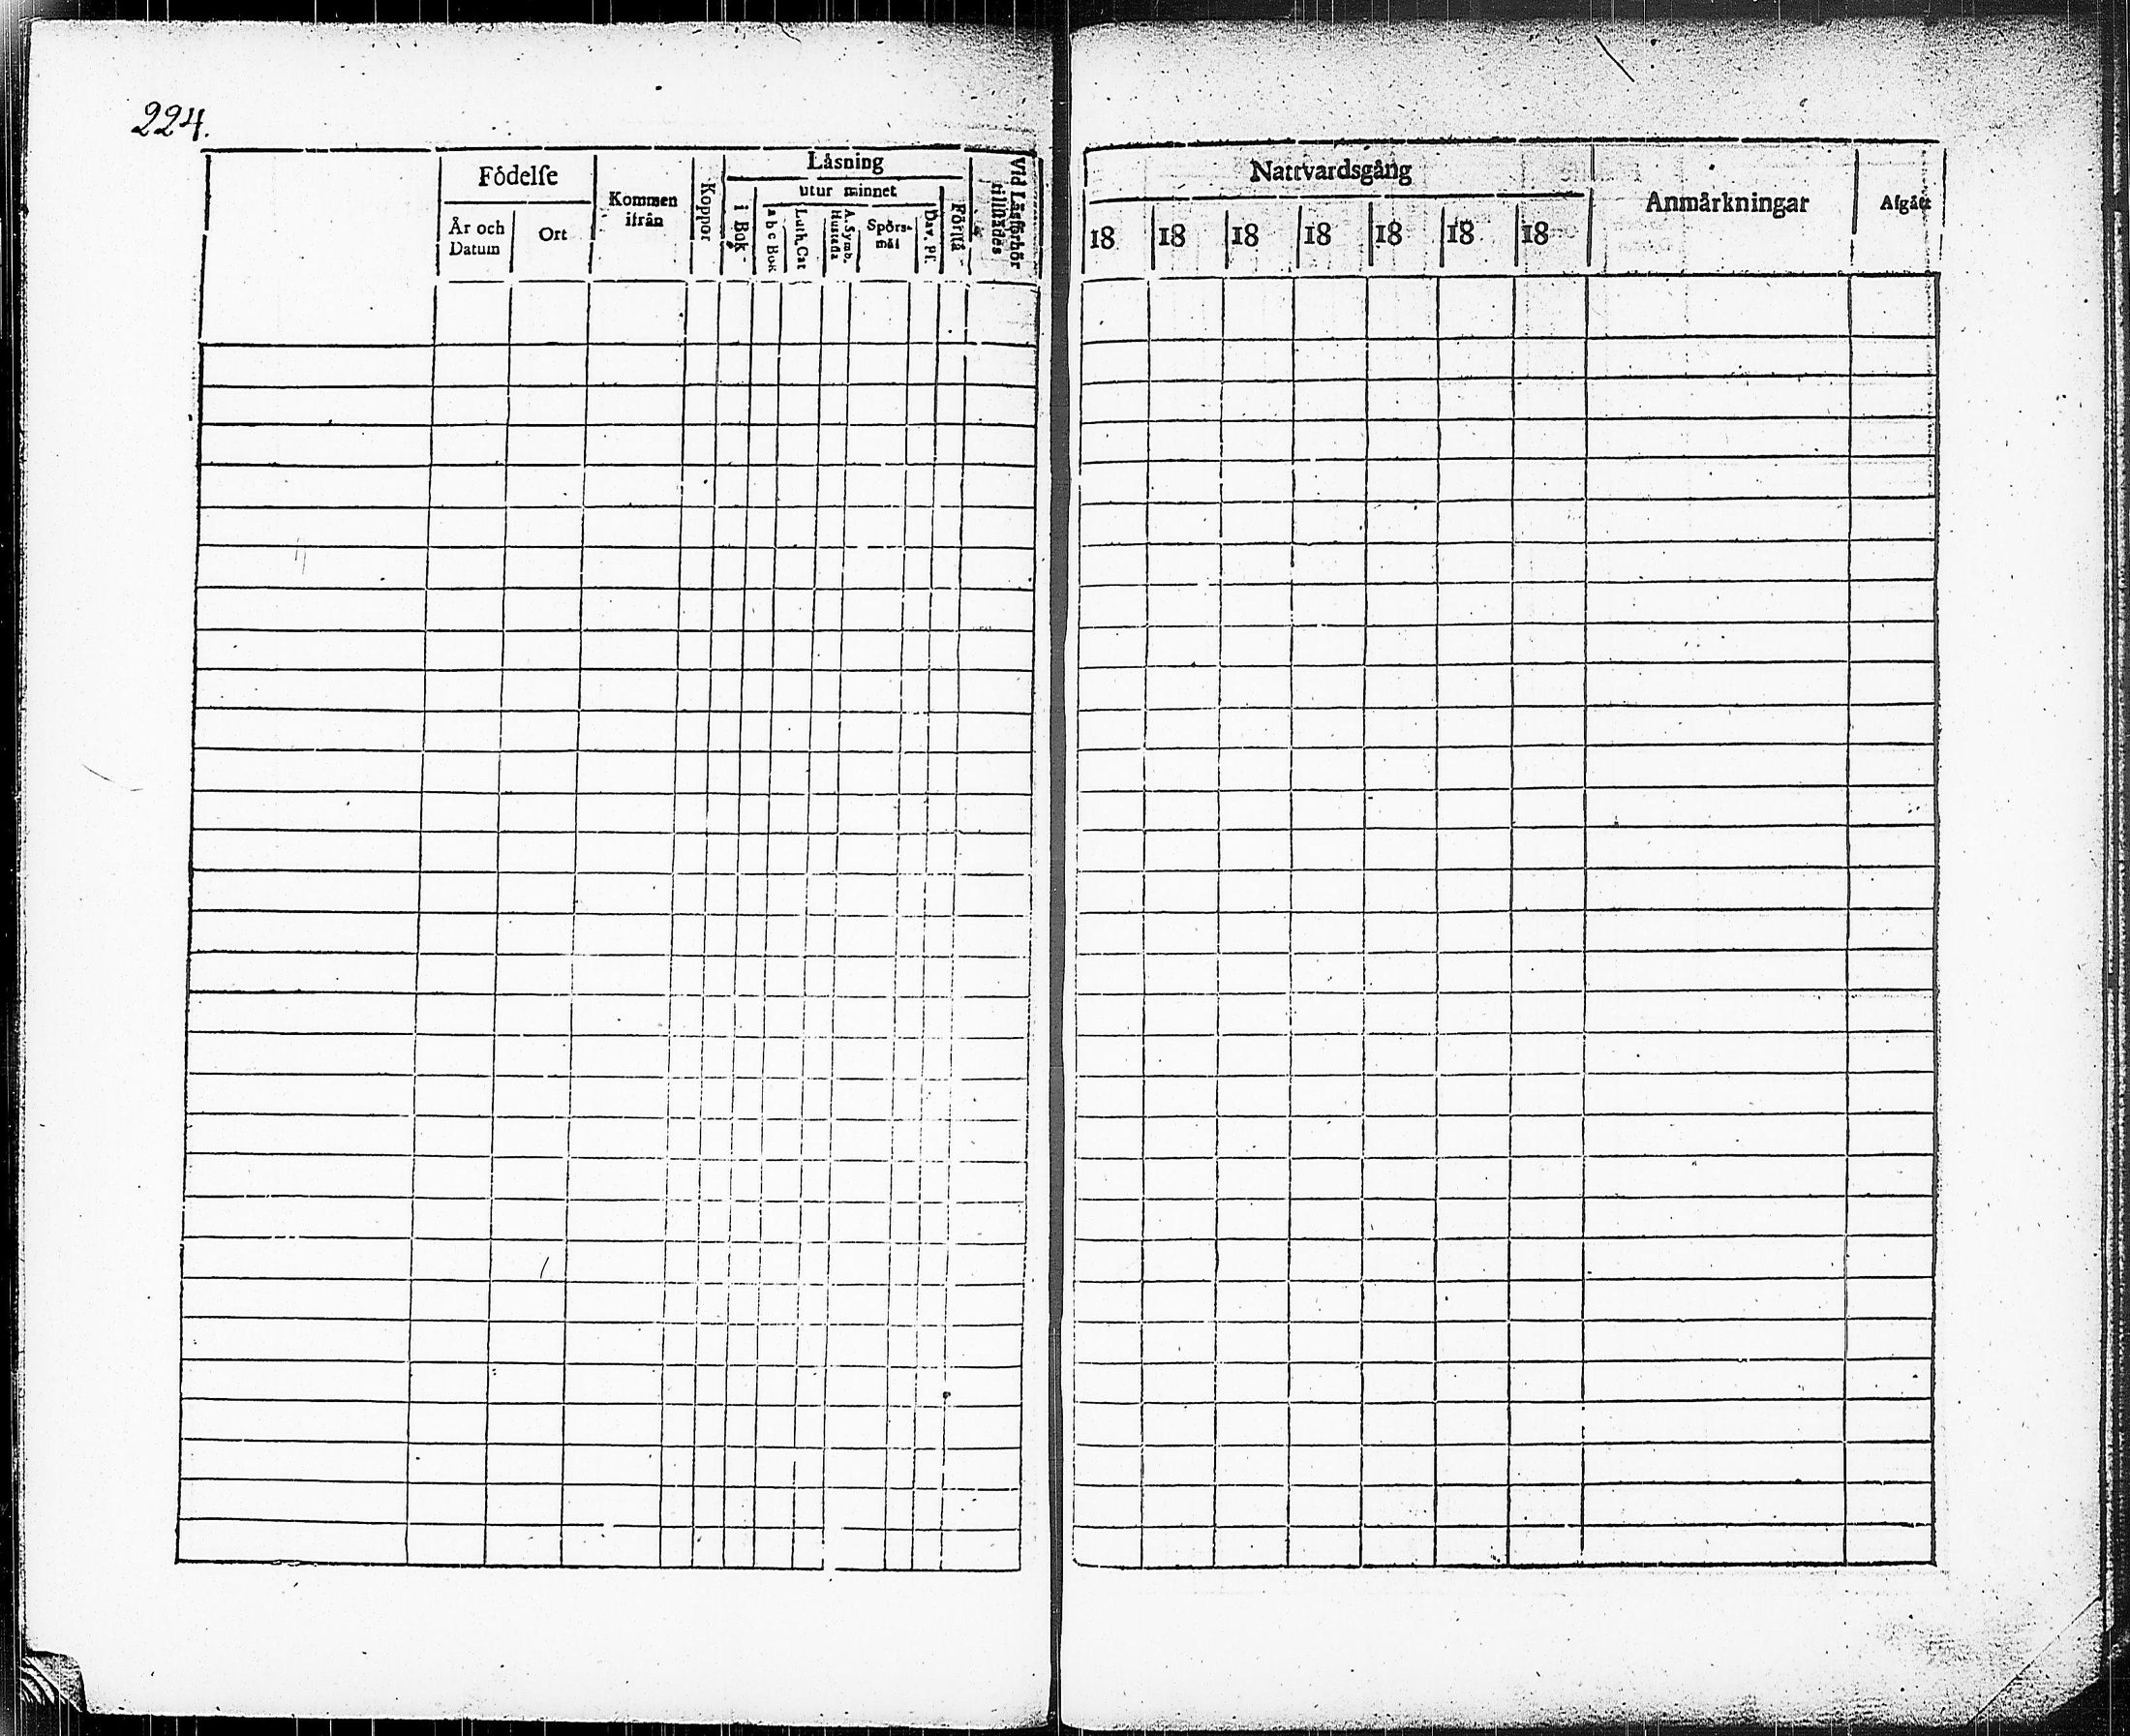 224.
Födelſe
År och Datum
Ort
Kommen ifrån
Koppor
Läsning
i Bok
utur minnet
a b c Bok
Luth. Cat
A. Symb. Hustafla
Spörsmål
Dav. Pſ.
Förſtå
Vid Läsförhör tillſtådes
Nattvardsgång
18 18 18 18 18 18 18
Anmärkningar
Afgått